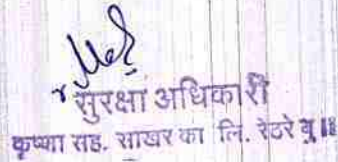 सुरक्षा अधिकारी
कृष्णा सह. साखर का लि. रेठरे बु ॥